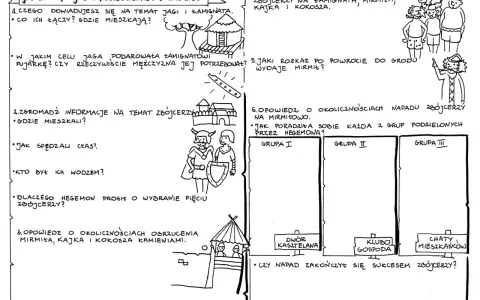 1. CZEGO DOWIADUJESZ SIĘ NA TEMAT JAGI I ŁAMIGNATA.
• CO ICH ŁĄCZY? GDZIE MIESZKAJĄ?
• W JAKIM CELU JAGA PODAROWAŁA ŁAMIGNATOWI
FUJARKĘ? CZY RZECZYWIŚCIE MĘŻCZYZNA JEJ POTRZEBOWAŁ?
2. ZGROMADŹ INFORMACJE NA TEMAT ZBÓJCERZY
• GDZIE MIESZKALI?
• JAK SPĘDZALI CZAS?
• KTO BYŁ ICH WODZEM?
• DLACZEGO HEGEMON PROSIŁ O WYBRANIE PIĘCIU
ZBÓJCERZY?
3. OPOWIEDZ O OKOLICZNOŚCIACH OBRZUCENIA
MIRMIŁA, KAJKA I KOKOSZA KAMIENIAMI.
ZBÓJCERZY NA ŁAMIGNATA, MIRMIŁA,
KAJKA I KOKOSZA.
5. JAKI ROZKAZ PO POWROCIE DO GRODU
WYDAJE MIRMIŁ?
6. OPOWIEDZ O OKOLICZNOŚCIACH NAPADU ZBÓJCERZY
NA MIRMIŁOWO.
• JAK PORADZIŁA SOBIE KAŻDA Z GRUP PODZIELONYCH
PRZEZ HEGEMONA?
GRUPA I
GRUPA II
GRUPA III
DWÓR
KASZTELANA
KLUBO
GOSPODA
CHATY
MIESZKAŃCÓW
• CZY NAPAD ZAKOŃCZYŁ SIĘ SUKCESEM ZBÓJCERZY?